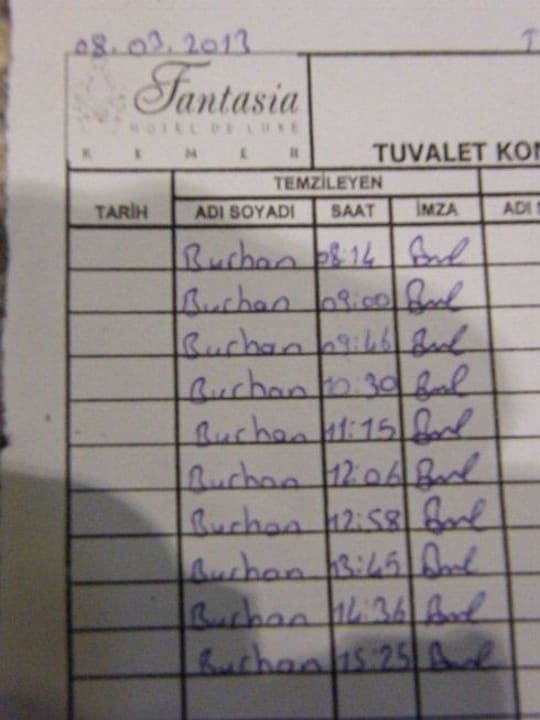 08.03.2013 T
Fantasia
HOTEL DE LUXE
K E M E R
TUVALET KON
TEMZİLEYEN
TARİH ADI SOYADI SAAT İMZA ADI S
Burhan 08:14
Burhan 09:00
Burhan 09:46
Burhan 10:30
Burhan 11:15
Burhan 12:06
Burhan 12:58
Burhan 13:45
Burhan 14:36
Burhan 15:25